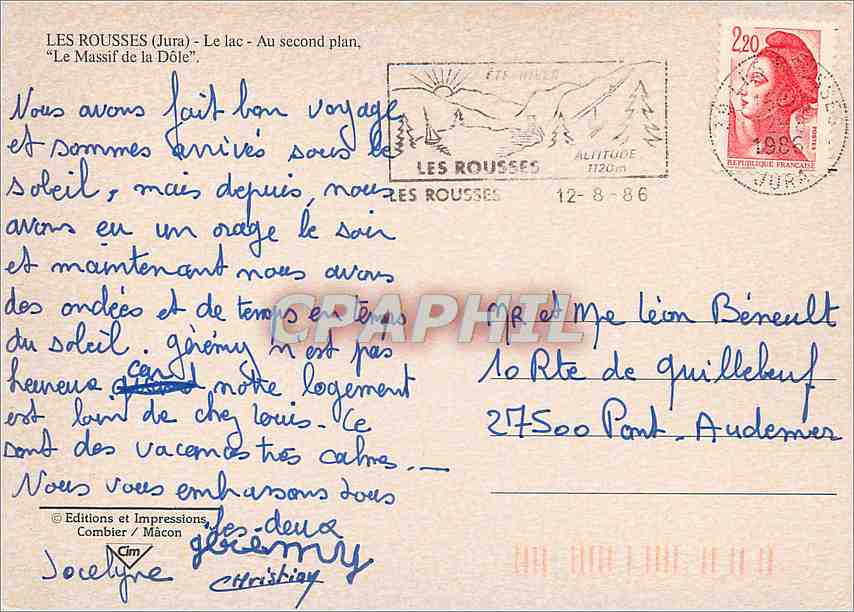 LES ROUSSES (Jura) - Le lac - Au second plan,
"Le Massif de la Dôle".
Nous avons fait bon voyage
et sommes arrivés sous le
soleil, mais depuis, nous
avons eu un orage le soir
et maintenant nous avons
des ondées et de temps en temps
du soleil. Gérémy n'est pas
heureux car notre logement
est loin de chez Louis - Ce
sont des vacances très calmes. -
Nous vous embrassons tous
les deux
Gérémy
Jocelyne Christian
© Editions et Impressions
Combier / Mâcon
Cim
ÉTÉ HIVER
LES ROUSSES
ALTITUDE
1120m
LES ROUSSES 12-8-86
2,20
POSTES
RÉPUBLIQUE FRANÇAISE
ROUSSES
1986
JURA
CPAPHIL
MR et Me Léon Béneult
10 Rte de Quillebeuf
27500 Pont-Audemer